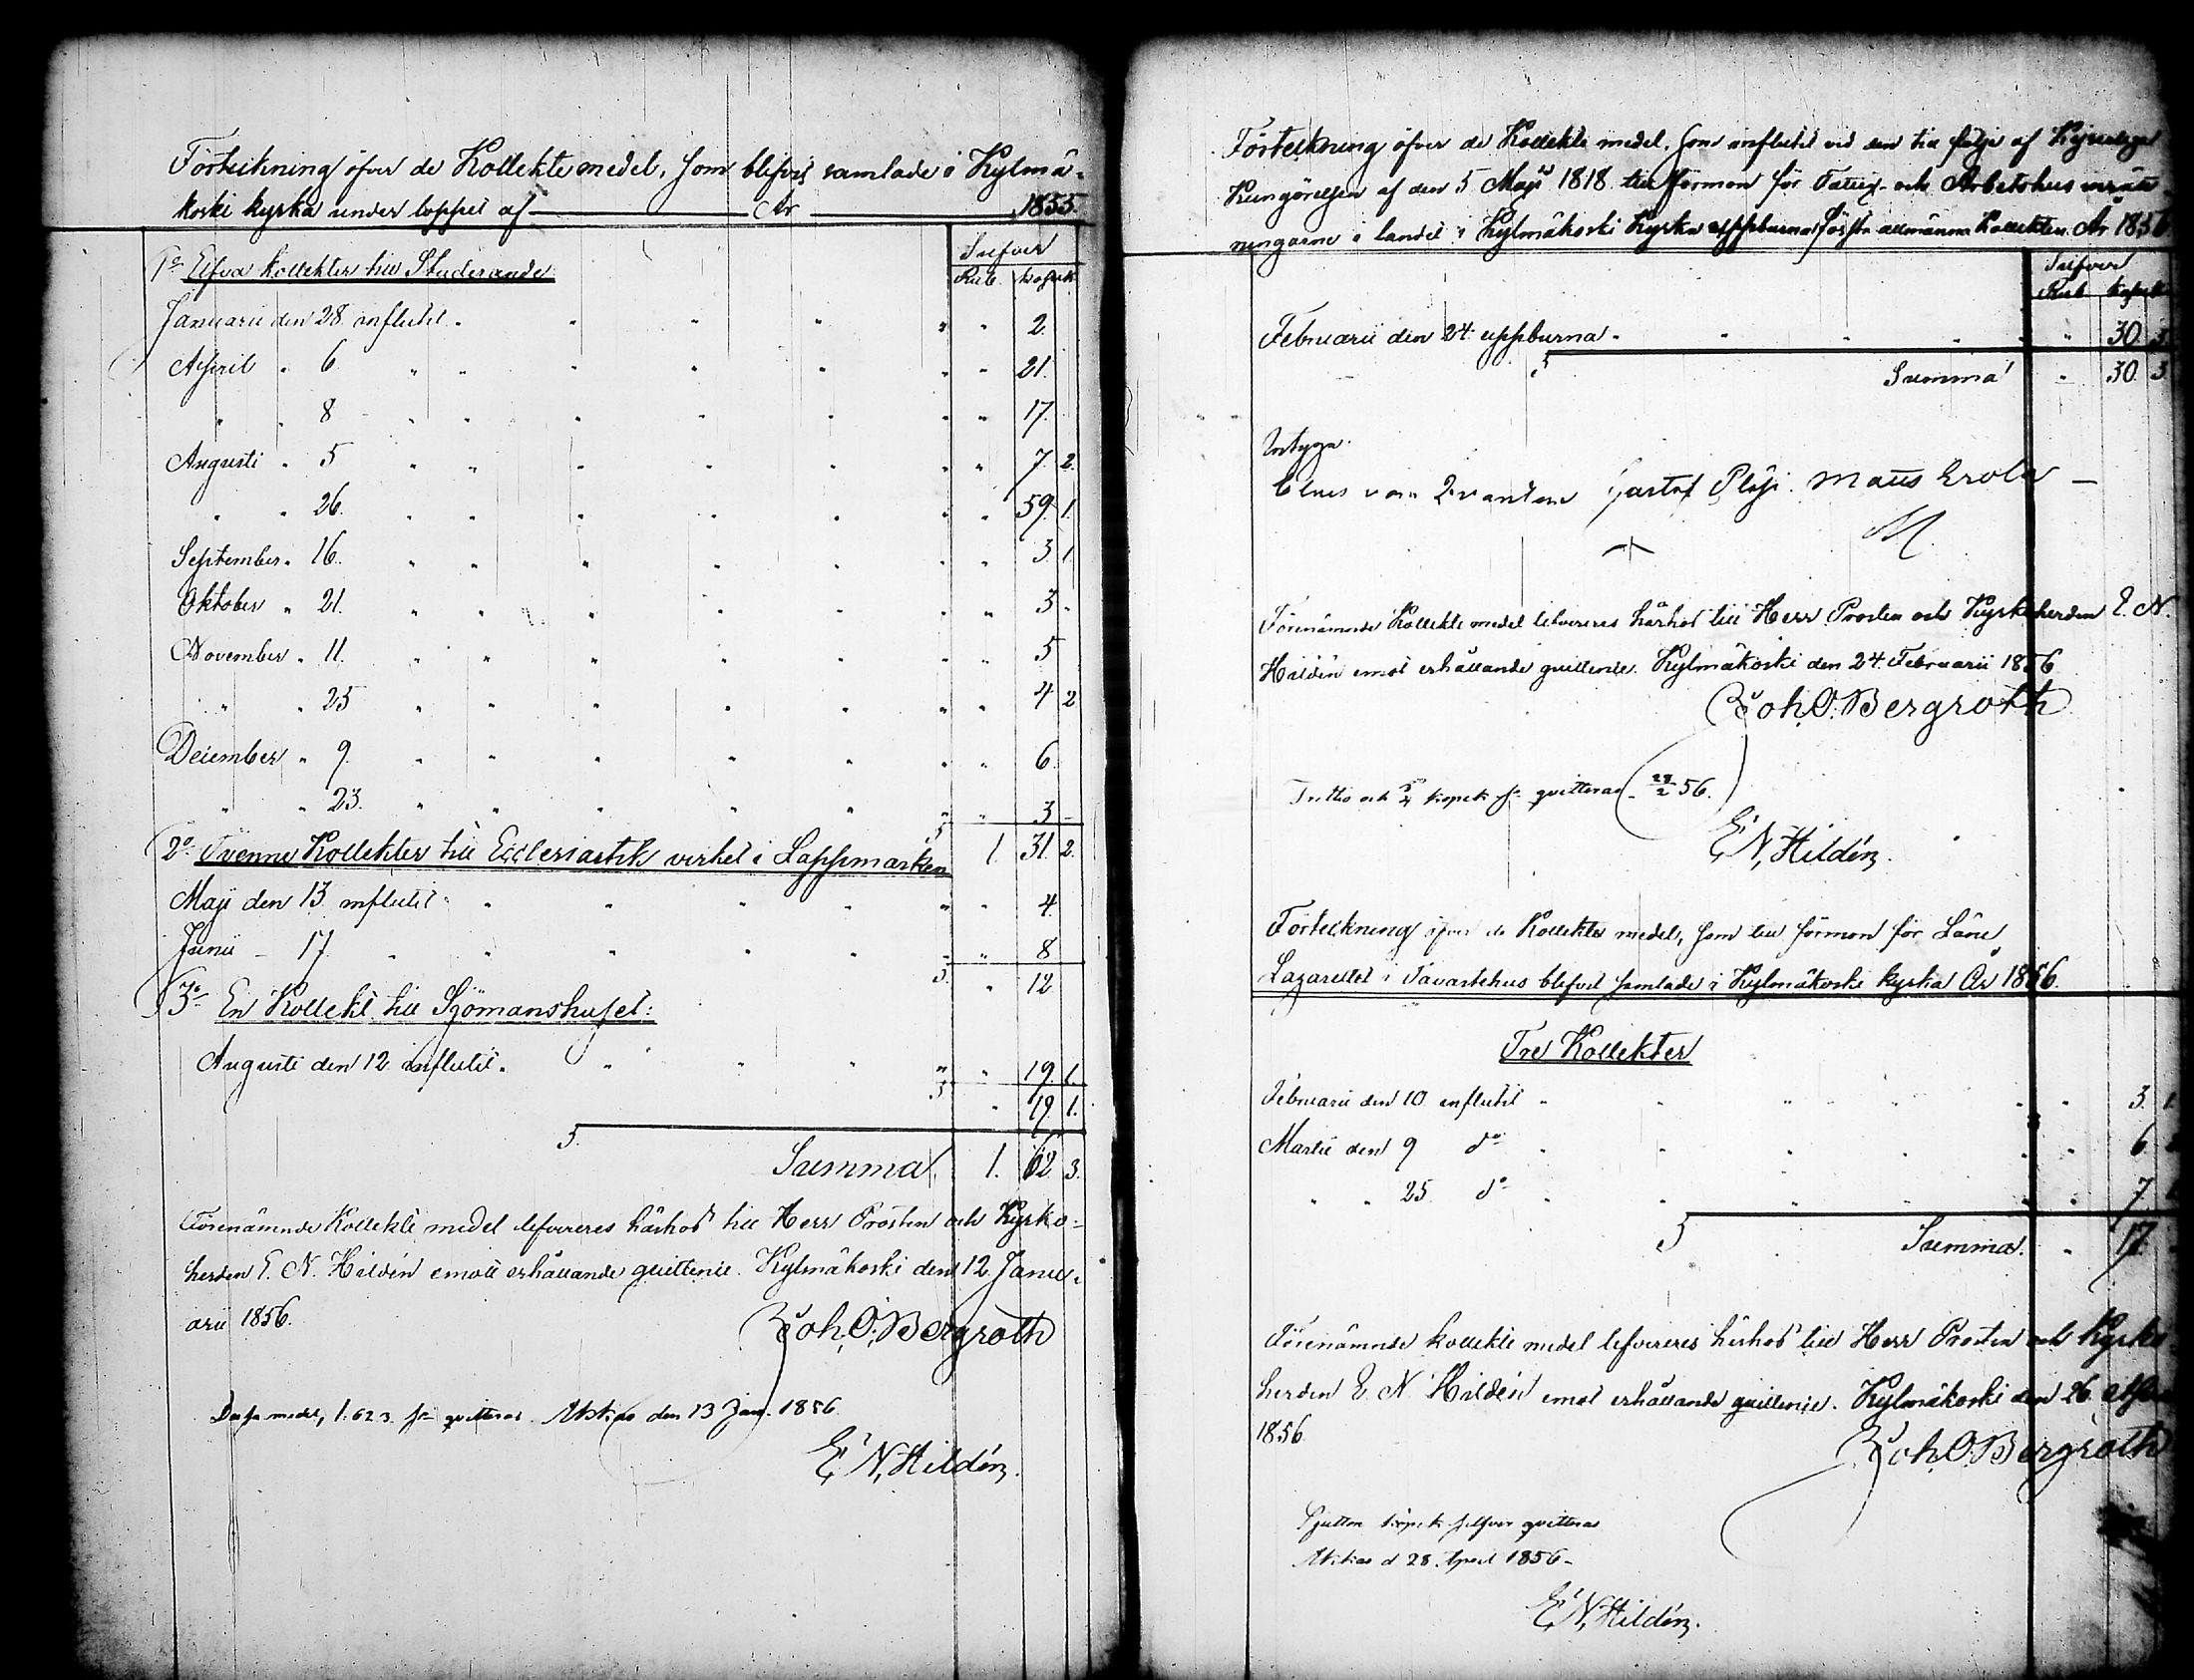 Förteckning öfver de Kollekte medel, som blifvit samlade i Kylmä-
koski kyrka under loppet af År 1855.
Silfver
1o Elfva Kollekter till Studerande
Rub. kopek
Januarii den 28 influtit " " 2.
April " 6. " " 21.
" " 8 " " 17.
Augusti " 5 " " 7. 2.
" " 26. " " 59. 1.
September " 16. " " 3. 1.
Oktober " 21. " " 3 -
November " 11. " " 5
" " 25 " " 4 2
December " 9. " " 6
" " 23. " " 3 -
2o Tvenne Kollekter till Ecclesiastik verket i Lappmarken S 1. 31. 2.
Maji den 13. influtit " " 4.
Junii - 17. " " 8
S " 12
3o En Kollekt till Sjömanshuset:
Augusti den 12 influtit " " 19. 1.
S " 19. 1.
S. Summa 1. 62 3.
Förenämnde Kollekte medel lefvereres härhos till Herr Prosten och Kyrko-
herden E. N. Hildén emott erhållande quittence. Kylmäkoski den 12 Janu-
arii 1856.
Joh. O. Bergroth
Dessa medel, 1. 62 3. sr qvitteras. Akkas den 13 Jan. 1856.
E. N. Hildén.
Förteckning öfver de Kollekte medel, som influtit vid den till följe af Kejserliga
Kungörelsen af den 5 Maji 1818 till förmon för Fattig- och Arbetshus inrätt-
ningarne i landet i Kylmäkoski Kyrka uppburna första allmänna Kollekten År 1856
Silfver
Rub kopek
Februarii den 24. uppburna " " 30. 3.
S Summa " 30. 3
Intyga.
Gustaf Matts Erola
M
Förenämnde Kollekte medel lefvereres härhos till Herr Prosten och Kyrkoherden E. N.
Hildén emot erhållande quittence. Kylmäkoski den 24. Februarii 1856
Joh. O. Bergroth
Trettio och 3/4 kopek sr qvitteras 56.
E. N. Hildén.
Förteckning öfver de Kollekte medel, som till förmon för Läne
Lazarettet i Tavastehus blifvit samlade i Kylmäkoski kyrka År 1856.
Tre Kollekter
Februarii den 10 influtit " " 3. 1.
Martii den 9 do " " 6
" " 25. do " " 7.
S Summa. " 17.
Förenämnde kollekte medel lefvereres härhos till Herr Prosten och Kyrko
herden E. N. Hildén emot erhållande quittence. Kylmäkoski den 26.
1856.
Joh. O. Bergroth
Sjutton kopek silfver qvitteras
Akkas d 28. April 1856 -
E. N. Hildén.